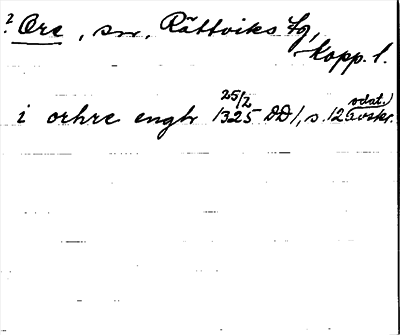 ? Ore, sn, Rättviks tg,
Kopp. l.
i orhre engh 25/2 1325 DD 1, s. 12 odat. avskr.